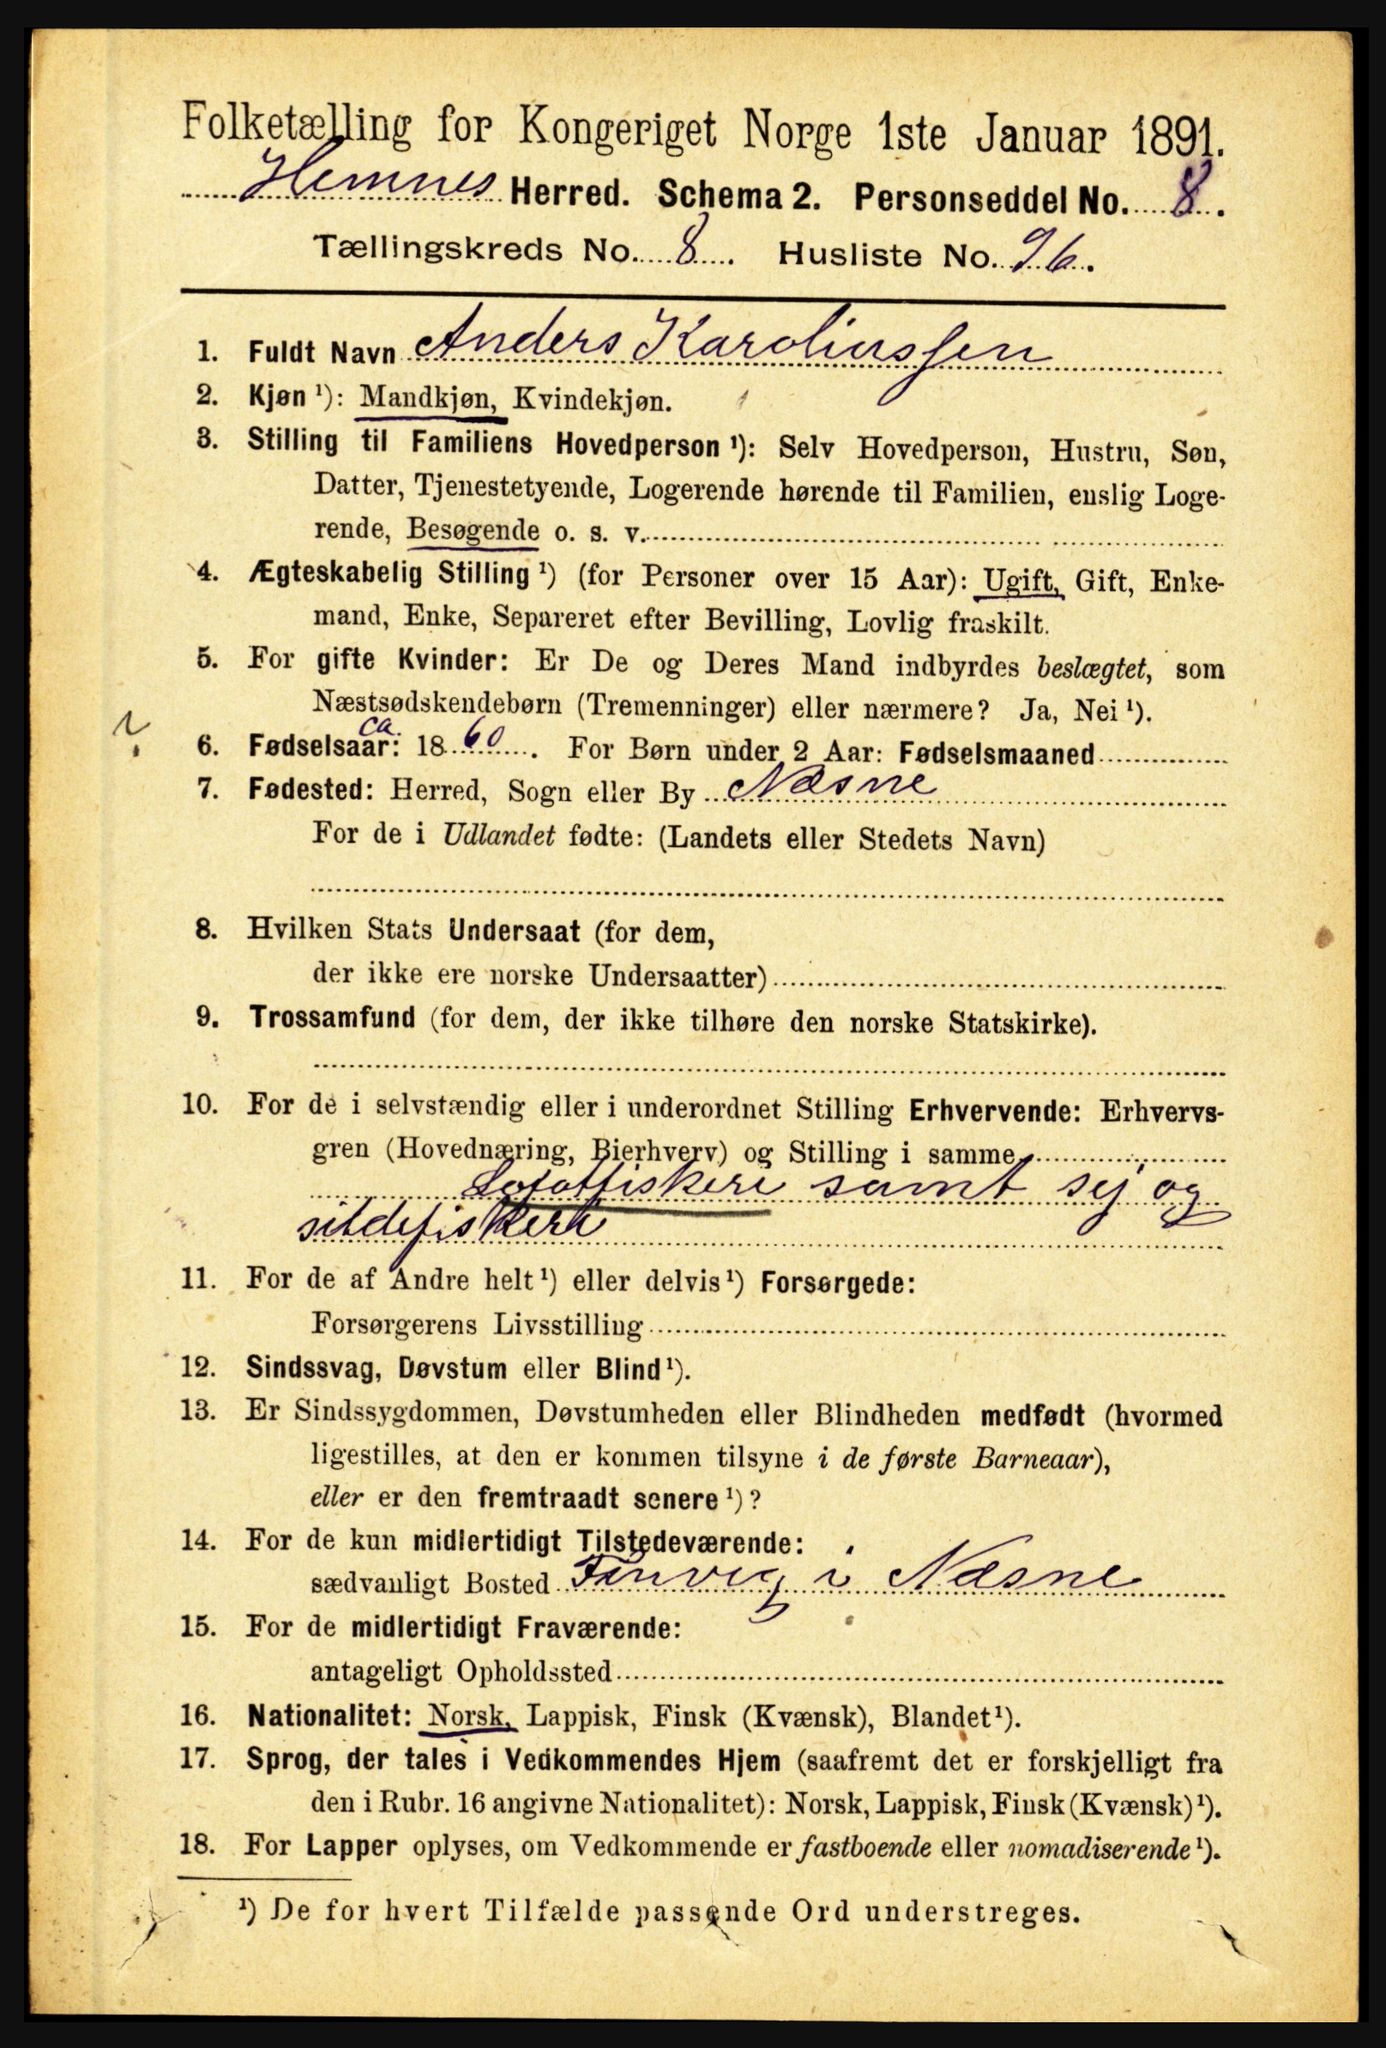 Folketælling for Kongeriget Norge 1ste Januar 1891.
Hemnes Herred. Schema 2. Personseddel No. 8.
Tællingskreds No. 8. Husliste No. 96.
1. Fuldt Navn Anders Karolinssen
2. Kjøn ¹): Mandkjøn, Kvindekjøn.
3. Stilling til Familiens Hovedperson ¹): Selv Hovedperson, Hustru, Søn,
Datter, Tjenestetyende, Logerende hørende til Familien, enslig Loge-
rende, Besøgende o. s. v.
4. Ægteskabelig Stilling ¹) (for Personer over 15 Aar): Ugift, Gift, Enke-
mand, Enke, Separeret efter Bevilling, Lovlig fraskilt.
5. For gifte Kvinder: Er De og Deres Mand indbyrdes beslægtet, som
Næstsødskendebørn (Tremenninger) eller nærmere? Ja, Nei ¹).
ca.
6. Fødselsaar: 1860. For Børn under 2 Aar: Fødselsmaaned
7. Fødested: Herred, Sogn eller By Næsne
For de i Udlandet fødte: (Landets eller Stedets Navn)
8. Hvilken Stats Undersaat (for dem,
der ikke ere norske Undersaatter)
9. Trossamfund (for dem, der ikke tilhøre den norske Statskirke).
10. For de i selvstændig eller i underordnet Stilling Erhvervende: Erhvervs-
gren (Hovednæring, Bierhverv) og Stilling i samme
Lofotfiskeri samt sej og
sildefiskeri
11. For de af Andre helt ¹) eller delvis ¹) Forsørgede:
Forsørgerens Livsstilling
12. Sindssvag, Døvstum eller Blind ¹).
13. Er Sindssygdommen, Døvstumheden eller Blindheden medfødt (hvormed
ligestilles, at den er kommen tilsyne i de første Barneaar),
eller er den fremtraadt senere ¹)?
14. For de kun midlertidigt Tilstedeværende:
sædvanligt Bosted i Næsne
15. For de midlertidigt Fraværende:
antageligt Opholdssted
16. Nationalitet: Norsk, Lappisk, Finsk (Kvænsk), Blandet ¹).
17. Sprog, der tales i Vedkommendes Hjem (saafremt det er forskjelligt fra
den i Rubr. 16 angivne Nationalitet): Norsk, Lappisk, Finsk (Kvænsk) ¹).
18. For Lapper oplyses, om Vedkommende er fastboende eller nomadiserende ¹).
¹) De for hvert Tilfælde passende Ord understreges.